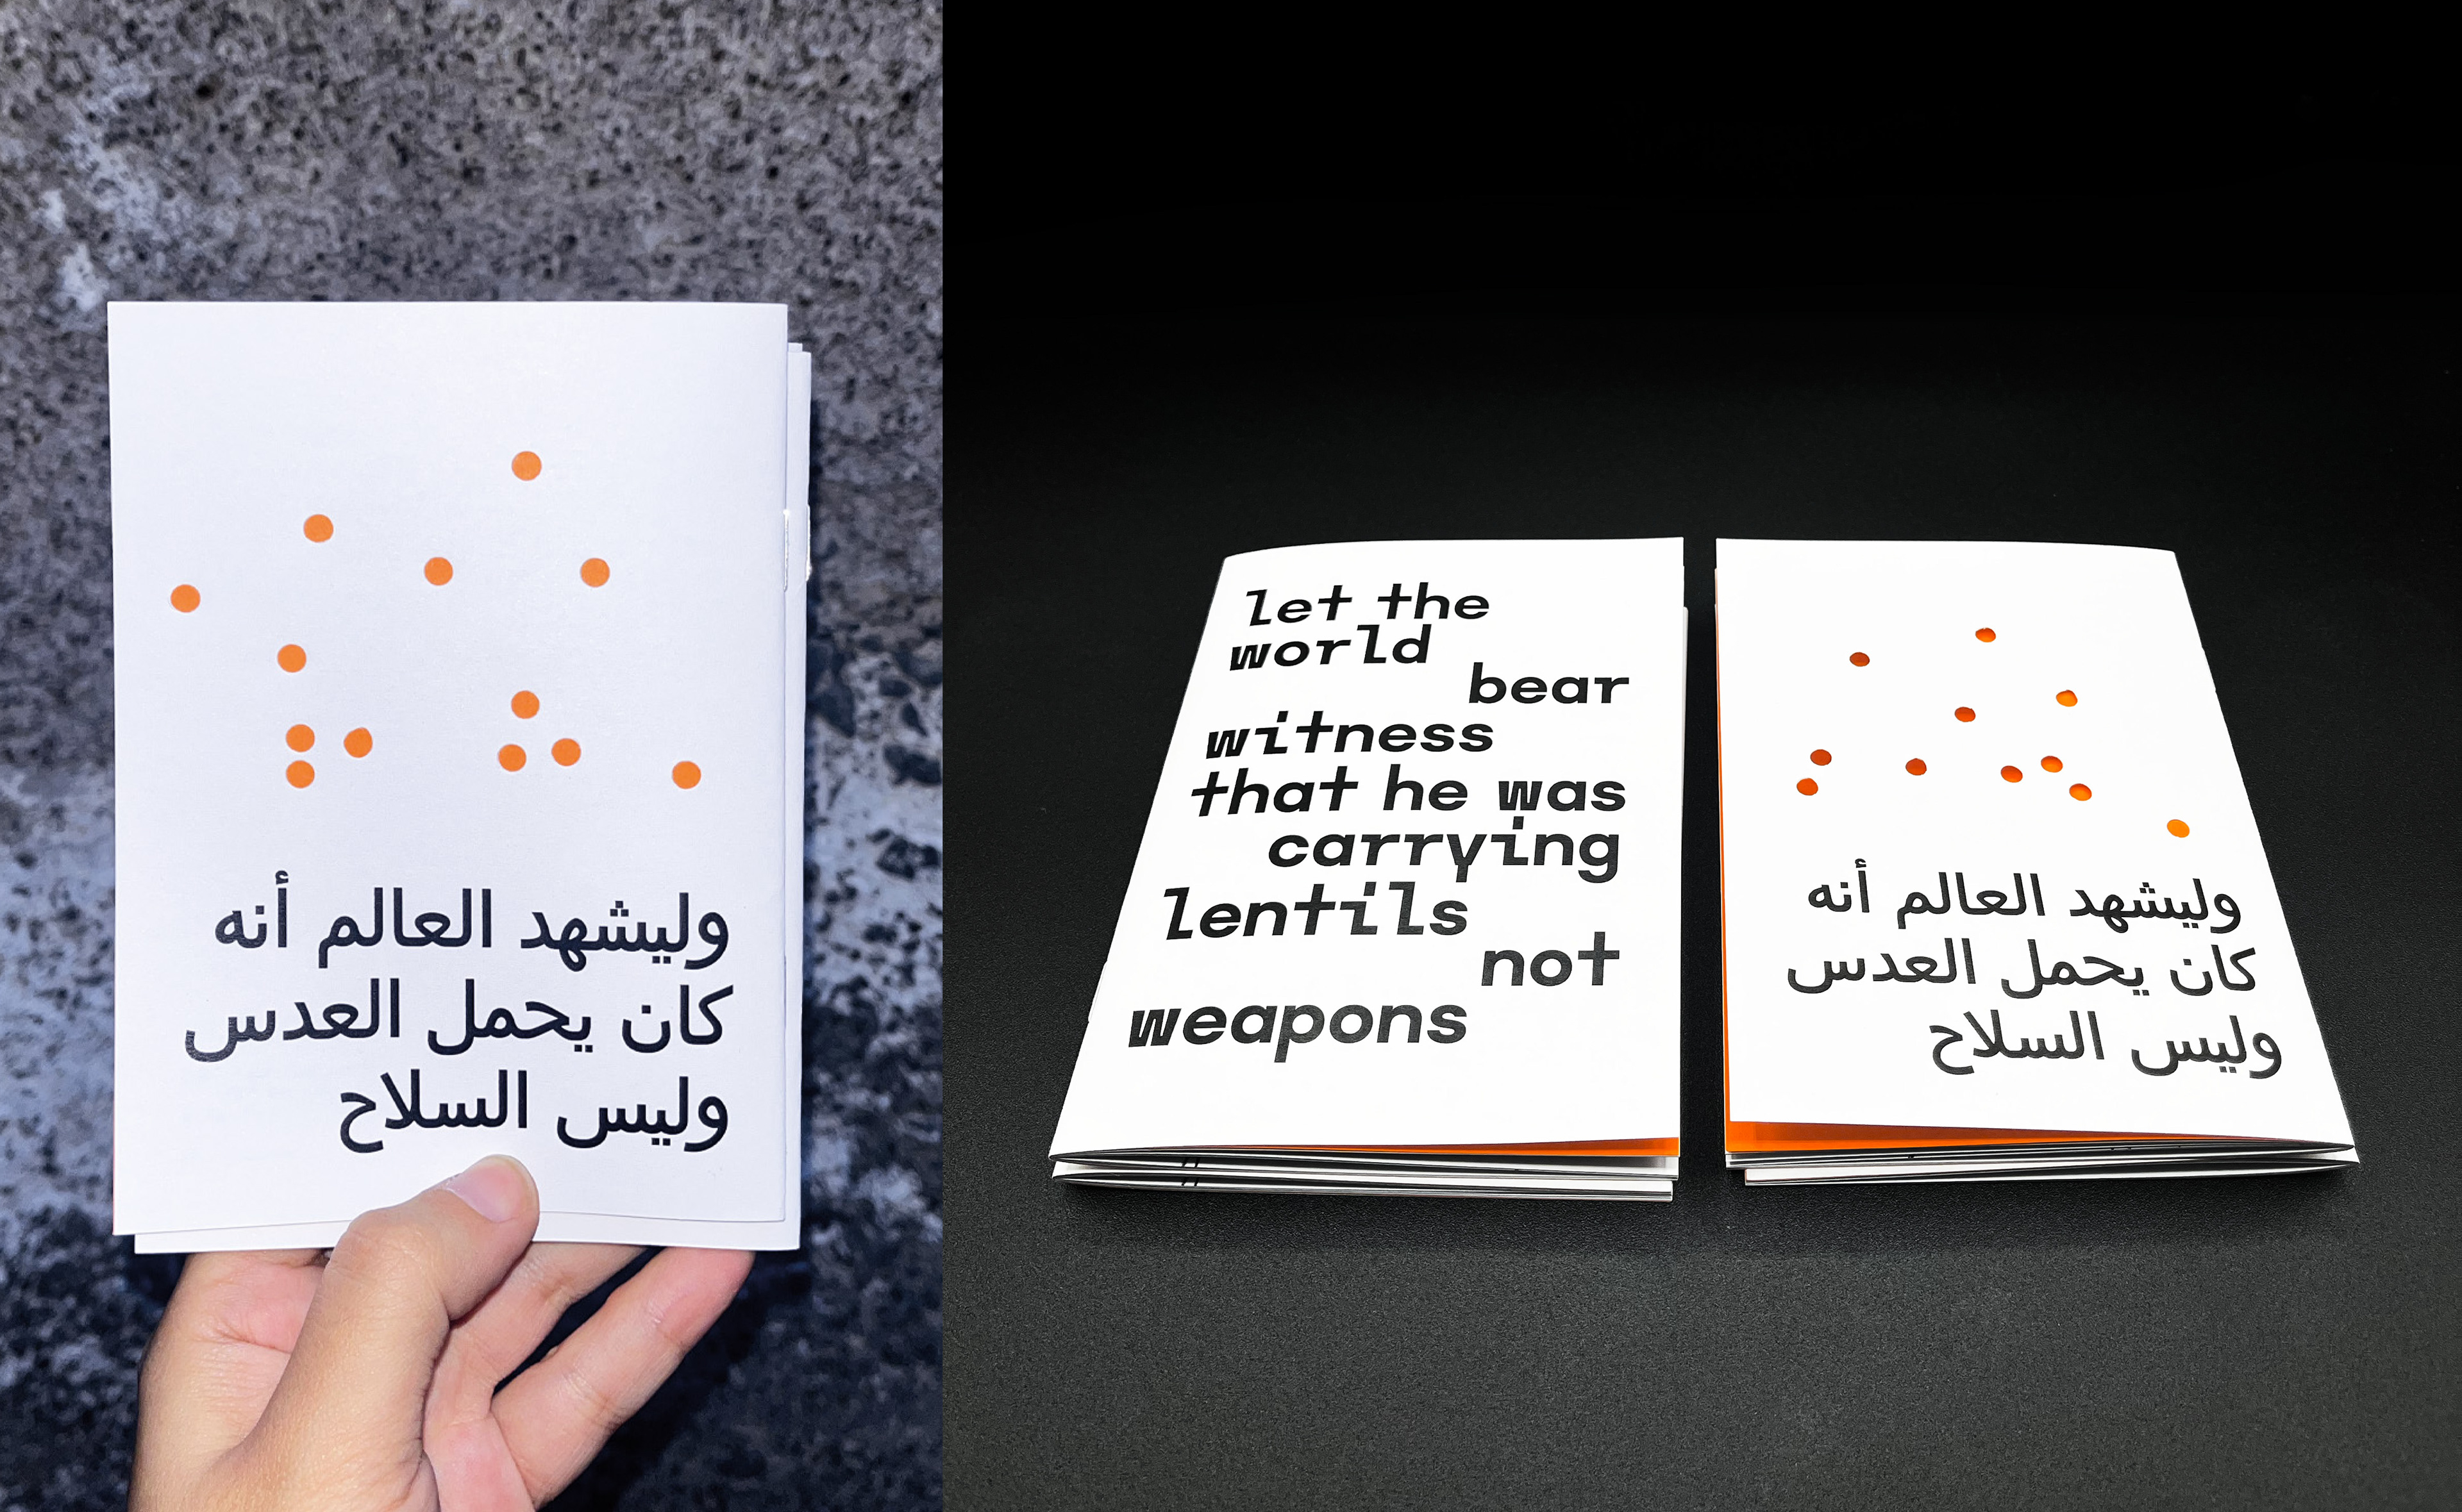 وليشهد العالم أنه
كان يحمل العدس
وليس السلاح
let the
world
bear
witness
that he was
carrying
lentils
not
weapons
وليشهد العالم أنه
كان يحمل العدس
وليس السلاح